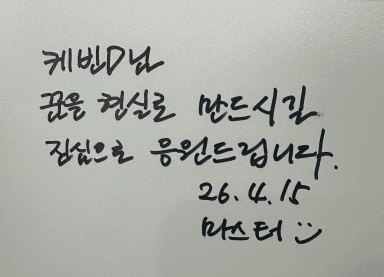 케빈D님
꿈을 현실로 만드시길
진심으로 응원드립니다.
26.4.15
마스터 :)